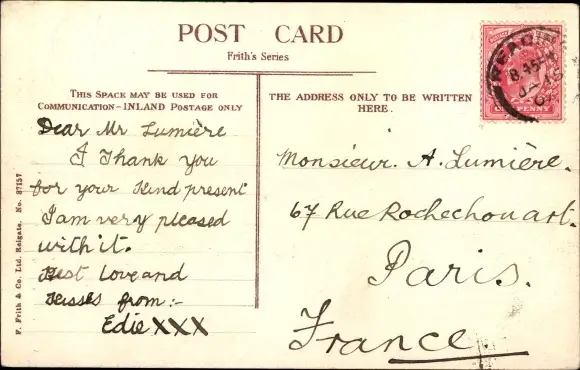 POST CARD
Frith's Series
THIS SPACE MAY BE USED FOR
COMMUNICATION - INLAND POSTAGE ONLY
THE ADDRESS ONLY TO BE WRITTEN
HERE.
Dear Mr Lumière
I Thank you
for your Kind present
I am very pleased
with it.
Best love and
Kisses from:-
Edie XXX
Monsieur. A. Lumière.
67 Rue Rochechouart.
Paris.
France.
F. Frith & Co. Ltd. Reigate. No. 27157
READING
8.45 PM
JA 15
07
ONE PENNY